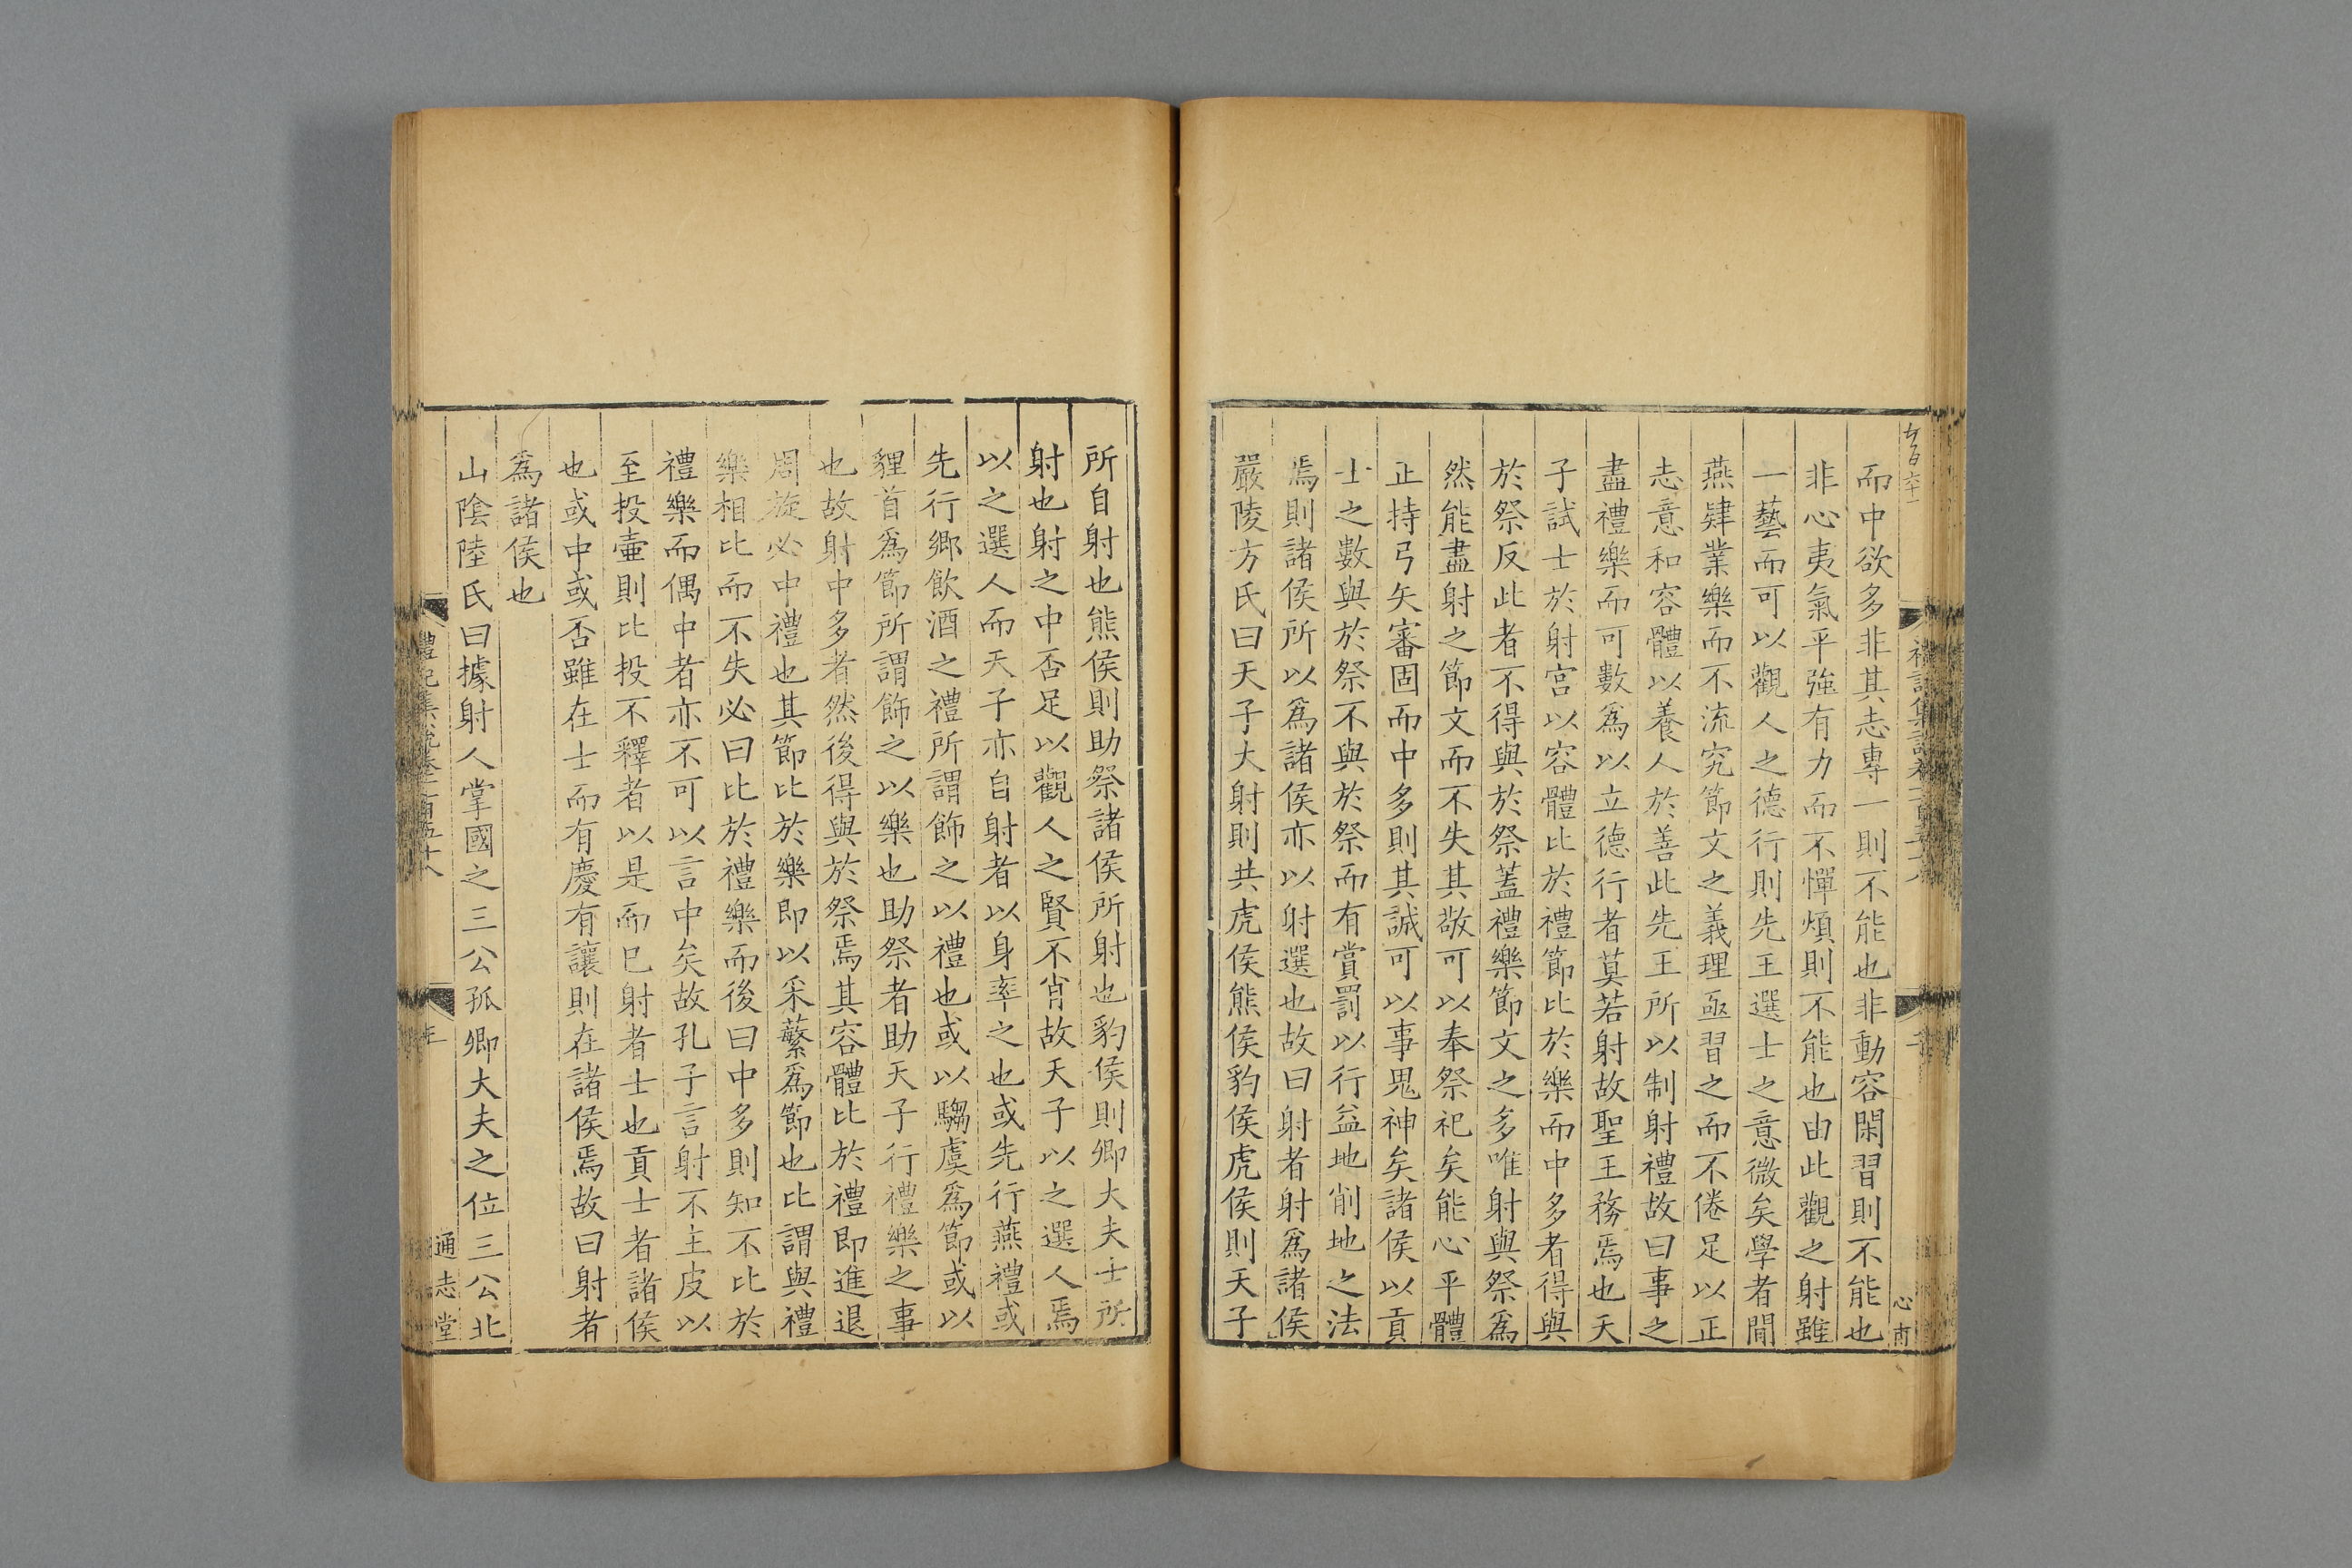 而中欲多非其志專一則不能也非動容閑習則不能也
非心夷氣平強有力而不憚煩則不能也由此觀之射雖
一藝而可以觀人之德行則先王選士之意微矣學者閒
燕肄業樂而不流究節文之義理亟習之而不倦足以正
志意和容體以養人於善此先王所以制射禮故曰事之
盡禮樂而可數為以立德行者莫若射故聖王務焉也天
子試士於射宮以容體比於禮節比於樂而中多者得與
於祭反此者不得與於祭蓋禮樂節文之多唯射與祭為
然能盡射之節文而不失其敬可以奉祭祀矣能心平體
正持弓矢審固而中多則其誠可以事鬼神矣諸侯以貢
士之數與於祭不與於祭而有賞罰以行益地削地之法
焉則諸侯所以為諸侯亦以射選也故曰射者射為諸侯
嚴陵方氏曰天子大射則共虎侯熊侯豹侯虎侯則天子
所自射也熊侯則助祭諸侯所射也豹侯則卿大夫士所
射也射之中否足以觀人之賢不肖故天子以之選人焉
以之選人而天子亦自射者以身率之也或先行燕禮或
先行鄉飲酒之禮所謂飾之以禮也或以騶虞為節或以
貍首為節所謂飾之以樂也助祭者助天子行禮樂之事
也故射中多者然後得與於祭焉其容體比於禮即進退
周旋必中禮也其節比於樂即以采蘩為節也比謂與禮
樂相比而不失必曰比於禮樂而後曰中多則知不比於
禮樂而偶中者亦不可以言中矣故孔子言射不主皮以
至投壷則比投不釋者以是而已射者士也貢士者諸侯
也或中或否雖在士而有慶有讓則在諸侯焉故曰射者
為諸侯也
山陰陸氏曰據射人掌國之三公孤卿大夫之位三公北
禮記集說卷一百五十八
通志堂